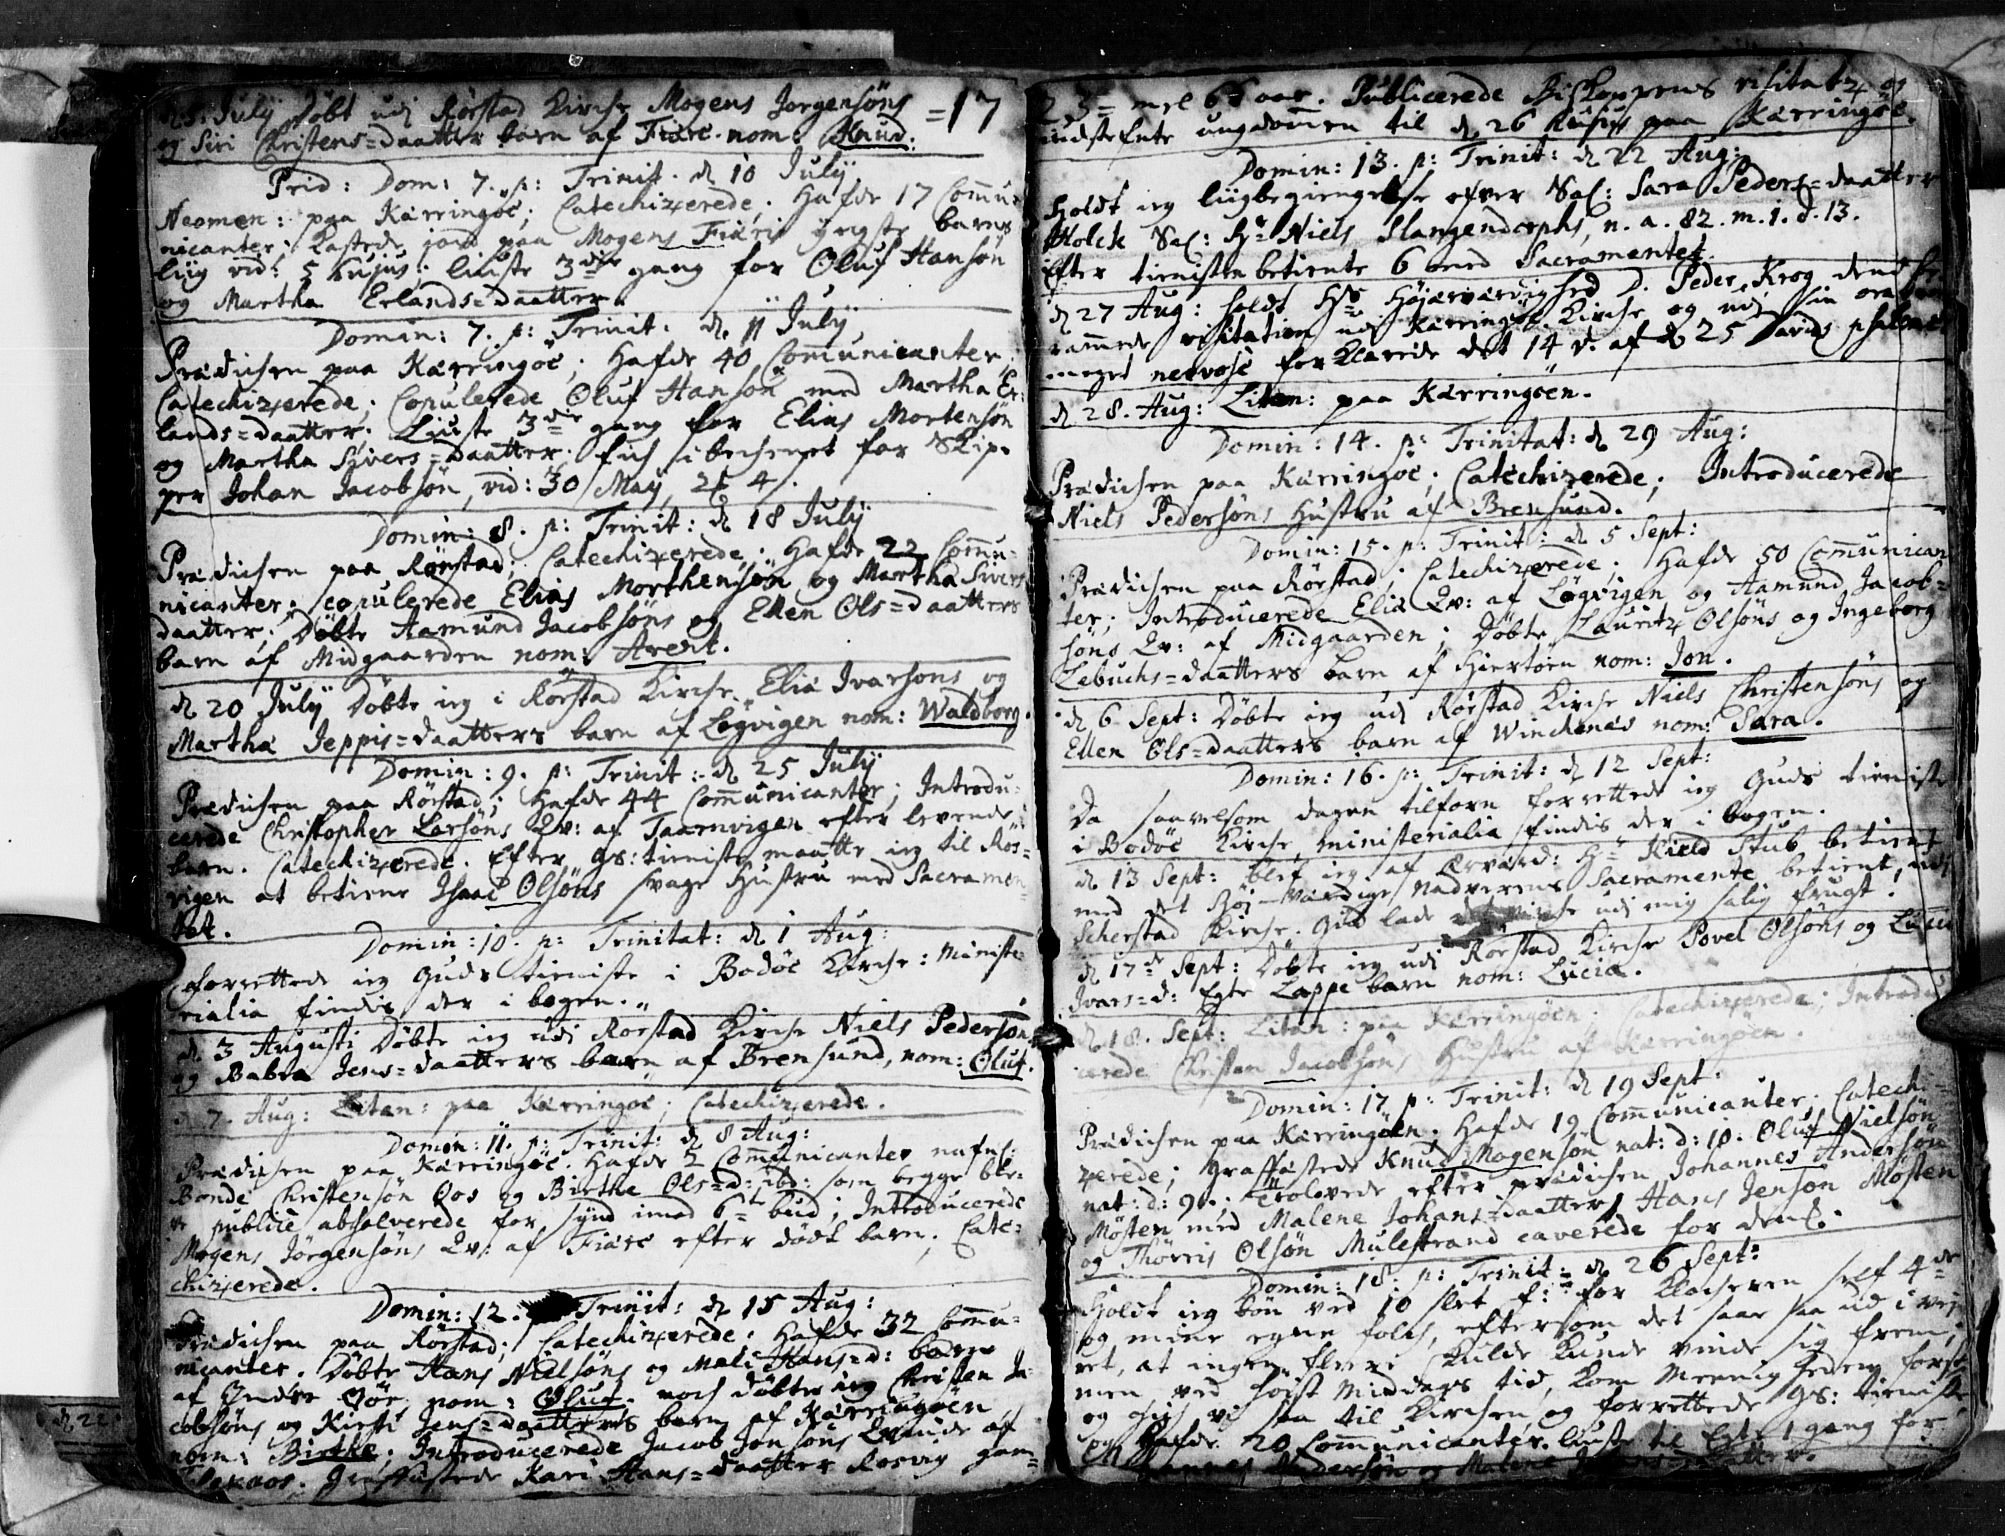 d. 5. July Døbt udj Rørstad Kirche Mogens Jorgensöns = 17
og Siri Christens=daatter barn af Fiære nom: Knud.
Prid: Dom: 7. p: Trinit. d 10 July
Neomen: paa Kærringøe; Catechizerede; Hafde 17 Commu-
nicanter; Kastede jord paa Mogens Fiæris yngste barns
liig vid: 5 hujus; liuste 3die gang for Oluf Hansön
og Martha Erlands=daatter.
Domin: 7. p: Trinit: d. 11 July
Prædichen paa Kærringøe; Hafde 40 Communicanter;
Catechizerede; Copulerede Oluf Hansön med Martha Er:
lands=daatter; Liuste 3die gang for Elias Mortensön
og Martha Sivers=daatter; fich ibechenet for Skip-
per Johan Jacobsön, vid: 30 Maij, 2 4.
Domin: 8. p: Trinit: d 18 July
Prædichen paa Rørstad; Catechizerede; Hafde 22 Commu-
nicanter; copulerede Elias Morthensøn og Martha Sivers
daatter; Døbte Aamund Jacobsöns og Ellen Ols=daatters
barn af Midgaarden nom: Arent.
d 20 July Døbte ieg i Rørstad Kirche Eliæ Ivarsons og
Martha Jeppis=daatters barn af Løgvigen nom: Waldborg.
Domin: 9. p: Trinit: d 25 July
Prædichen paa Rørstad; Hafde 44 Communicanter; Introdu-
cerede Christopher Larsöns Qv: af Taarnvigen efter levende
barn. Catechizerede. Efter Gs: tieniste maatte ieg til Ros-
vigen at betiene Isaac Olsöns svage Hustru med Sacramen
tet.
Domin: 10. p: Trinitat: d 1 Aug:
forrettede ieg Guds tieniste i Bodøe Kirche: ministe-
rialia findis der i bogen.
d. 3 Augusti Døbte ieg udi Rørstad Kirche Niels Pedersön
og Babra Jens=daatters barn af Brensund, nom: Oluf.
d 7. Aug: Litan: paa Kærringøe; Catechizerede.
Domin: 11. p: Trinit: d 8 Aug:
Prædichen paa Kærringøe. Hafde 2 Communicanter nafnl:
Bonde Christensön Oos og Birthe Ols=d: ibd: som begge ble-
ve publice absolverede for synd imod 6te bud; Introducerede
Mogens Jörgensöns Qv: af Fiære efter dödt barn. Cate-
chizerede.
Domin: 12. Trinit: d 15 Aug:
Prædichen paa Rørstad; Catechizerede; Hafde 32 Commu-
nicanter. Døbte Hans Nielsöns og Mali Hans=d: barn
af Indre Øør, nom: Oluf. noch døbte ieg Christen Ja-
cobsöns og Kirsti Jens=daatters barn af Kærringøen
nom: Birthe; Introducerede Jacob Jonsöns Qvinde af
. Graffæstede Kari Hans=daatter Rosvig gam-
23= mel 6= aar. Publicerede Biskoppens visitatz og
indstefnte ungdomen til d. 26 hujus paa Kærringøe.
Domin: 13. p: Trinit: d 22 Aug:
Holdt ieg liigbegiengelse ofver Sal: Sara Peders=daatter
Holck Sal: Hr Niels Slangendorphs, n. a. 82. m. 1. d. 13.
Efter tienisten betiente 6 med Sacramentet.
d 27 Aug: holdt Hs Højærværdighed D. Peder Krog dend be-
rammede visitation udi Kærringøe Kirche og udj sin oration
meget nervose forklarede det 14 v. af d 25 Davids psalme.
d 28. Aug: Litan: paa Kærringøen.
Domin: 14. p: Trinitat: d 29 Aug:
Prædichen paa Kærringøe; Catechizerede; Introducerede
Niels Pedersöns Hustru af Brensund.
Domin: 15. p: Trinit: d 5 Sept:
Prædichen paa Rørstad; Catechizerede; Hafde 50 Communican
ter; Introducerede Eliæ Qv: af Løgvigen og Aamund Jacob-
söns Qv: af Midgaarden; Døbte Lauritz Olsöns og Ingeborg
Lebuchs=daatters barn af Hiertøen nom: Jon.
d 6 Sept: Døbte ieg udj Rørstad Kirche Niels Christensöns og
Ellen Ols=daatters barn af Winchenes nom: Sara.
Domin: 16. p: Trinit: d 12 Sept:
Da saavelsom dagen tilforn forrettede ieg Guds tieniste
i Bodøe Kirche, ministerialia findis der i bogen.
d 13 Sept: blef ieg af Ærværd: Hr Kield Stub betient
med det Høj=værdige Nadverens Sacramente betient, udi
Scherstad Kirche. Gud lade udi mig salig frugt.
d 17de Sept: Døbte ieg udj Rørstad Kirche Povel Olsöns og Luciæ
Ivars=d: Egte Lappe barn nom: Lucia.
d 18. Sept: Litan: paa Kærringøen; Catechizerede; Introdu
cerede Christen Jacobsöns Hustru af Kærringøen.
Domin: 17 p: Trinit: d 19 Sept:
Prædichen paa Kærringøen; Hafde 19 Communicanter. Catechi-
zerede; Graffæstede Knud Mogensön nat: d: 10. Oluf Nielsön
nat: d: 9.; Trolovede efter prædichen Johannes Andersön
Møsten med Malene Johans=daatter, Hans Jensön Møsten
og Thörris Olsön Mulestrand caverede for dem.
Domin: 18. p: Trinit: d 26 Sept:
Holdt ieg bøn ved 10 slet f: for klocheren self 4de
og mine egne folch, eftersom det saae saa ud i vej-
ret, at ingen fleere skulde kunde vinde sig frem;
men ved høist middags tid, kom mennig hedem forse
og gich vi saa til kirchen og forrettede Gs: tieniste,
og hafde 20 Communicanter. liuste til Egte 1 gang for
Johannes Andersön og Malene Johans=daatter.